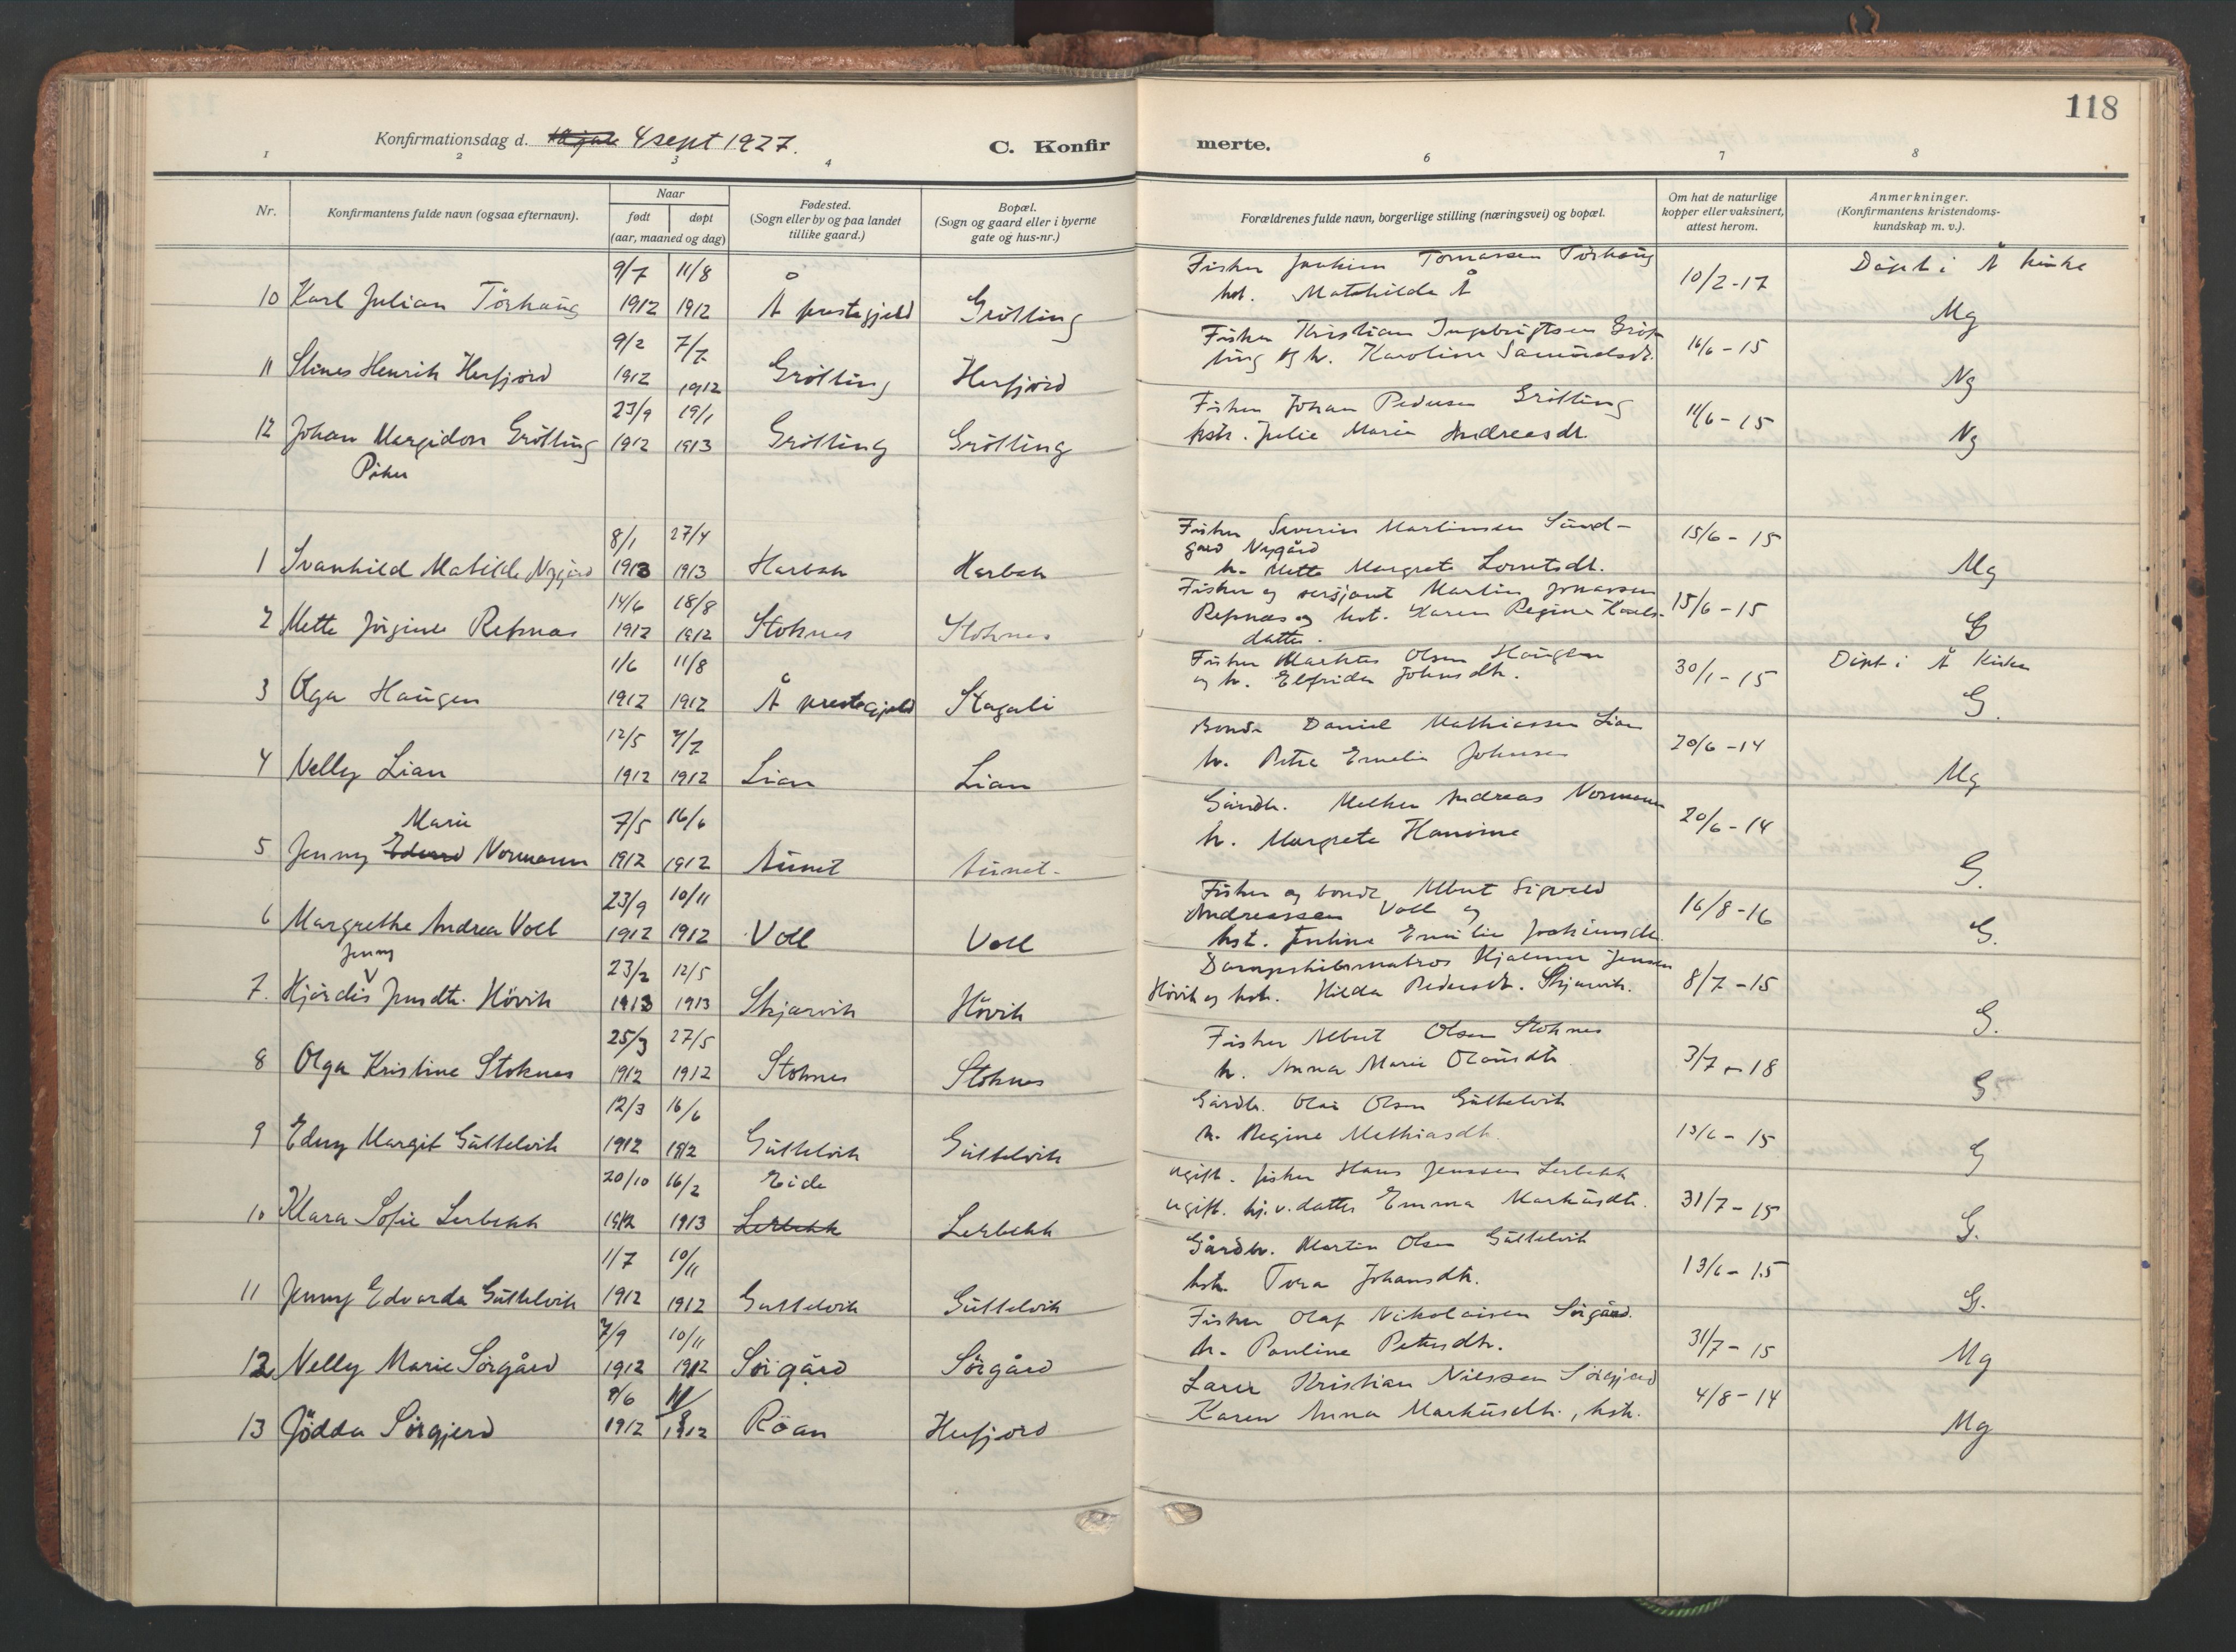 118
Konfirmationsdag d. 4 sept 1927.
C. Konfirmerte.
1 2 3 4 6 7 8
Nr.
Konfirmantens fulde navn (ogsaa efternavn).
Naar
født døpt
(aar, maaned og dag)
Fødested.
(Sogn eller by og paa landet
tillike gaard.)
Bopæl.
(Sogn og gaard eller i byerne
gate og hus-nr.)
Forældrenes fulde navn, borgerlige stilling (næringsvei) og bopæl.
Om hat de naturlige
kopper eller vaksinert,
attest herom.
Anmerkninger.
(Konfirmantens kristendoms-
kundskap m. v.).
9/7 11/8 Fisker Joakim Tomassen Torhaug Døpt i Å kirke
10 Karl Julian Törhaug 1912 1912 Å prestegjeld Grötting Mathilde Å 10/2-17 Mg
9/2 7/7 Fisker Kristian Ingebrigtsen Gröt-
11 Stines Henrik Herfjord 1912 1912 Grötting Herfjord ting og h. Karoline Samuelsdt. 16/6-15 Ng
23/9 19/1 Fisker Johan Pedersen Grötting
12 Johan Margidon Grötting 1912 1913 Grötting Grötting hstr. Julie Marie Andreasdt. 11/6-15 Ng
Piker
8/1 27/4 Fisker Severin Martinsen Sund-
gård Nygård 15/6-15
1 Svanhild Matilde Nygård 1913 1913 Harbak Harbak h. Mette Margrete Lorntsdt. Mg
14/6 18/8 Fisker og sersjant Martin Jonassen
2 Mette Jörgine Refsnes 1912 1912 Stoknes Stoknes Refsnes og hst. Karen Regine Karls- 15/6-15 G
datter.
1/6 11/8 Fisker Markus Olsen Haugen Døpt i Å kirke
3 Olga Haugen 1912 1912 Å prestegjeld Skagali og h. Elfrida Johnsdtr. 30/1-15 G.
12/5 7/7 Bonde Daniel Mathiassen Lian
4 Nelly Lian 1912 1912 Lian Lian h. Petra Emelie Johnsen 20/6-14 Mg
Marie 7/5 16/6 Gårdbr. Melker Andreas Normann
5 Jenny Edvard Normann 1912 1912 Aunet Aunet. h. Margrete Hansine 20/6-14 G.
23/9 10/11 Fisker og bonde Albert Sigvald
6 Margrethe Andrea Voll 1912 1912 Voll Voll Andreassen Voll og 16/8-16 G.
hst. Emilie Joakimsdt.
Jenny 23/2 12/5 Dampskibsmatros Hjalmar Jensen
7. Hjördis Jensdtr. Hövik 1913 1913 Skjærvik Hövik Hövik og hstr. Hilda Pedersdt. Skjærvik. 8/7-15 G.
25/3 27/5 Fisker Albert Olsen Stoknes
8 Olga Kristine Stoknes 1912 1912 Stoknes Stoknes h. Anna Marie Olausdtr. 3/7-18 G
12/3 16/6 Gårdbr. Olai Olsen Guttelvik
9 Edny Margit Guttelvik 1912 1912 Guttelvik Guttelvik h. Regine Mathiasdt. 13/6-15 G
20/10 16/2 Eide ugift. fisker Hans Jenssen Lerbekk
10 Klara Sofie Lerbekk 1912 1913 Lerbekk Lerbekk ugift. hj.v. datter Emma Markusdtr. 31/7-15 G.
1/7 10/11 Gårdbr. Martin Olsen Guttelvik
11 Jenny Edvarda Guttelvik 1912 1912 Guttelvik Guttelvik hstr. Tora Johansdtr. 13/6-15 G.
7/9 10/11 Fisker Olaf Nikolaisen Sörgård.
12 Nelly Marie Sörgård 1912 1912 Sörgård Sörgård h. Pauline Petersdtr. 31/7-15 Mg
8/6 11/8 Lærer Kristian Nilssen Sörgjerd
13 Jödda Sörgjerd 1912 1912 Röan Herfjord Karen Anna Markusdtr., hstr. 4/8-14 Mg